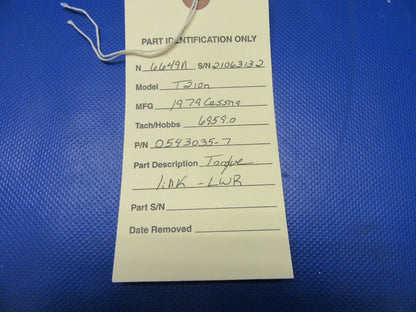 PART IDENTIFICATION ONLY
N 6649N S/N 21063132
Model T210n
MFG 1979 Cessna
Tach/Hobbs 6959.0
P/N 0543035-7
Part Description Torque
link - LWR
Part S/N
Date Removed